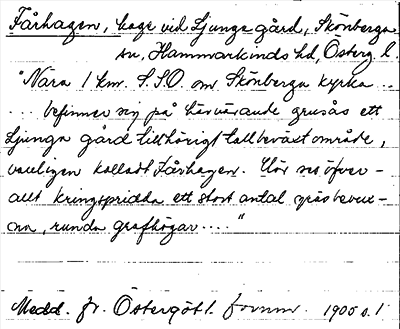 Fårhagen, hage vid Ljunga gård, Skönberga
sn, Hammarkinds hd, Österg. l.
"Nära 1 km. S.S.O. om Skönberga kyrka ...
... befinner sig på härvarande grusås ett
Ljunga gård tillhörigt tallbeväxt område,
vanligen kalladt Fårhagen. Här ses öfver-
allt kringspridda ett stort antal gräsbevux-
na, runda grafhögar ...."
Medd. fr. Östergötl. fornm. 1900 s. 1